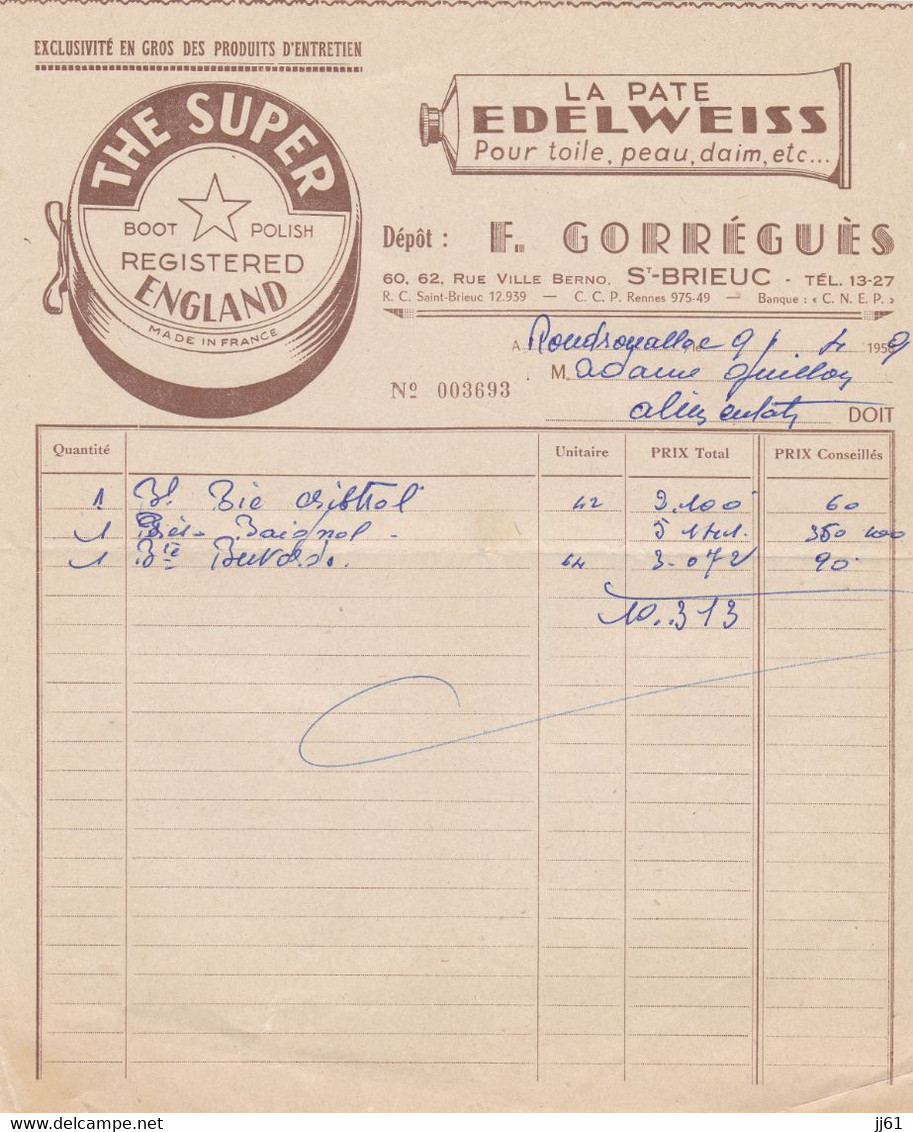 EXCLUSIVITÉ EN GROS DES PRODUITS D'ENTRETIEN
THE SUPER
BOOT POLISH
REGISTERED
ENGLAND
MADE IN FRANCE
LA PATE
EDELWEISS
Pour toile, peau, daim, etc...
Dépôt : F. GORRÉGUÈS
60, 62, RUE VILLE BERNO, ST-BRIEUC - TÉL. 13-27
R. C. Saint-Brieuc 12.939 — C. C. P. Rennes 975-49 — Banque : « C. N. E. P. »
A le 9 4 1959
M adame
Nº 003693
DOIT
Quantité Unitaire PRIX Total PRIX Conseillés
1 Bic 42 2.100 60
1 Baignol - 5 141. 350
1 Bte 64 3.072 90
10.313
jj61